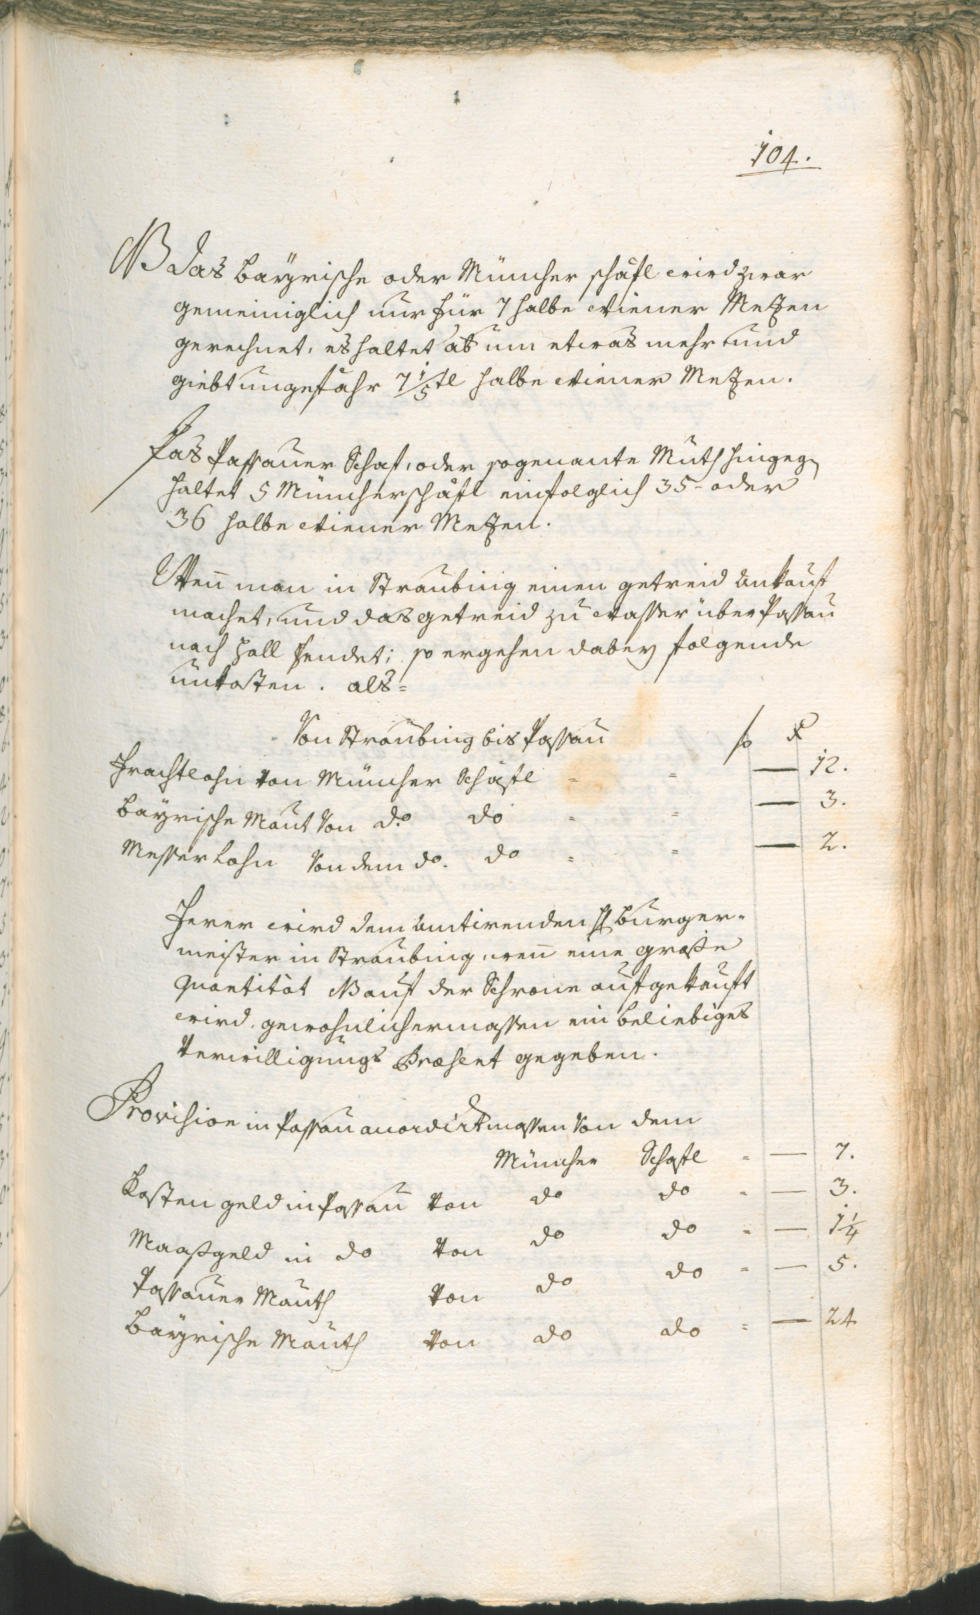 104.
NB das Bayrische oder Müncher schäfl wird zwar
gemeiniglich nur für 7 halbe Wiener Metzen
gerechnet, es haltet ab um etwas mehr und
giebt ungefähr 7 1/5tl halbe Wiener Metzen.
Das Passauer Schaf, oder sogenante Muth hingeg
haltet 5 Müncherschäfl einfolglich 35- oder
36 halbe Wiener Metzen.
Wen̄ man in Straubing einen getreid Ankauf
machet, und das getreid zu Wasser über Passau
nach Hall sendet; so ergehen dabey folgende
unkosten. als=
Von Straubing bis Passau f x
Frachtlohn von Müncher Schäfl = = — 12.
Bayrische Maut von do do = = — 3.
Messerlohn von dem do. do = = — 2.
Ferer wird dem Amtirenden H Burger-
meister in Straubing, wen̄ eine große
quantität NB auf der Schrane aufgekauft
wird, gewohnlichermassen ein beliebiges
Verwilligungs Præsent gegeben.
Provision in Passau accordirtmassen von dem
Müncher Schäfl = — 7.
Kastengeld in Passau von do do = — 3.
Maaßgeld in do von do do = — 1 1/4
Passauer Mauth von do do = — 5.
Bayrische Mauth von do do = — 24